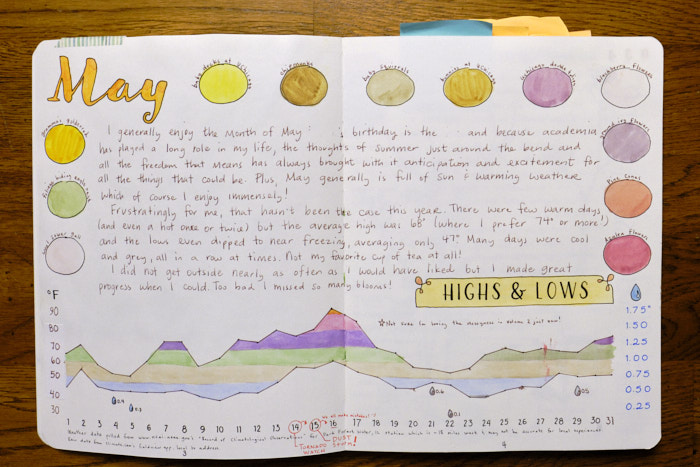 May
baby ducks at
chipmunks
baby squirrels
bunnies at
blackberry flowers
I generally enjoy the month of May: 's birthday is the : and because academia
has played a long role in my life, the thoughts of summer just around the bend and
all the freedom that means has always brought with it anticipation and excitement for
all the things that could be. Plus, May generally is full of sun & warming weather
which of course I enjoy immensely!
Frustratingly for me, that hain't been the case this year. There were few warm days
(and even a hot one or twice) but the average high was 68° (where I prefer 74° or more!)
and the lows even dipped to near freezing, averaging only 47°. Many days were cool
and grey, all in a row at times. Not my favorite cup of tea at all!
I did not get outside nearly as often as I would have liked but I made great
progress when I could. Too bad I missed so many blooms!
Pine Cones
HIGHS & LOWS
°F
90
80
70
60
50
40
30
1.75"
1.50
1.25
1.00
0.75
0.50
0.25
☆Not sure I'm loving the messyness in volume 2 just now!
0.4
0.3
0.6
0.1
0.5
1 2 3 4 5 6 7 8 9 10 11 12 13 14 15 16 17 18 19 20 21 22 23 24 25 26 27 28 29 30 31
we all make mistakes!
TORNADO
WATCH
DUST
STORM!
3
4